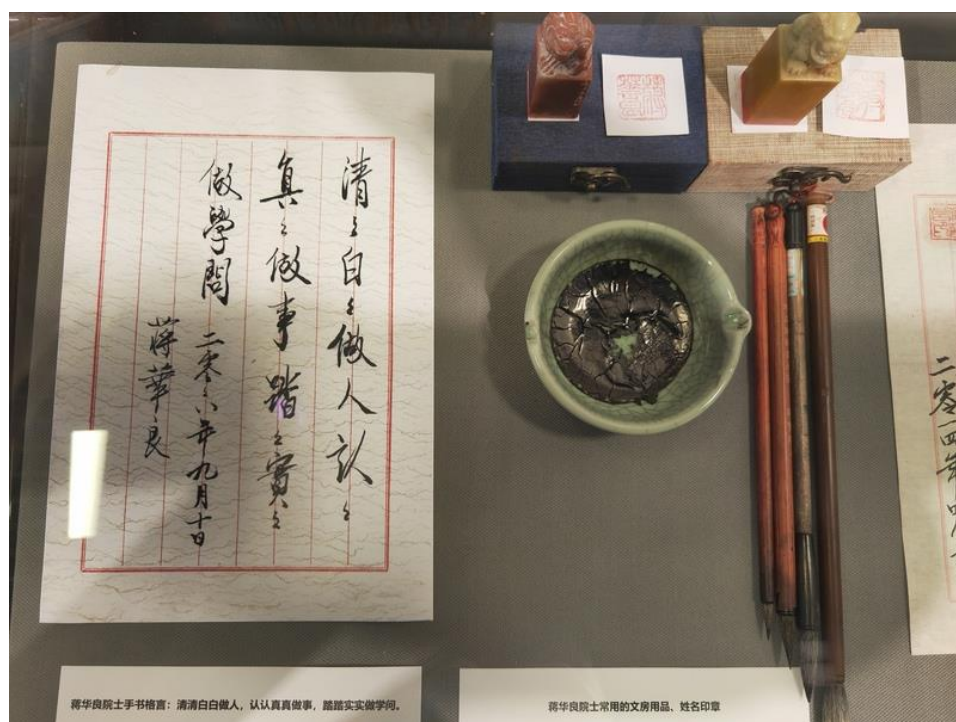 清〻白〻做人认〻
真〻做事踏〻實〻
做學問 二零六年九月十日
蔣華良
二零一四年
蒋华良院士手书格言：清清白白做人，认认真真做事，踏踏实实做学问。
蒋华良院士常用的文房用品、姓名印章